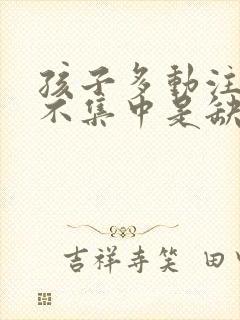 孩子多動注
不集中是缺
吉祥寺笑 田